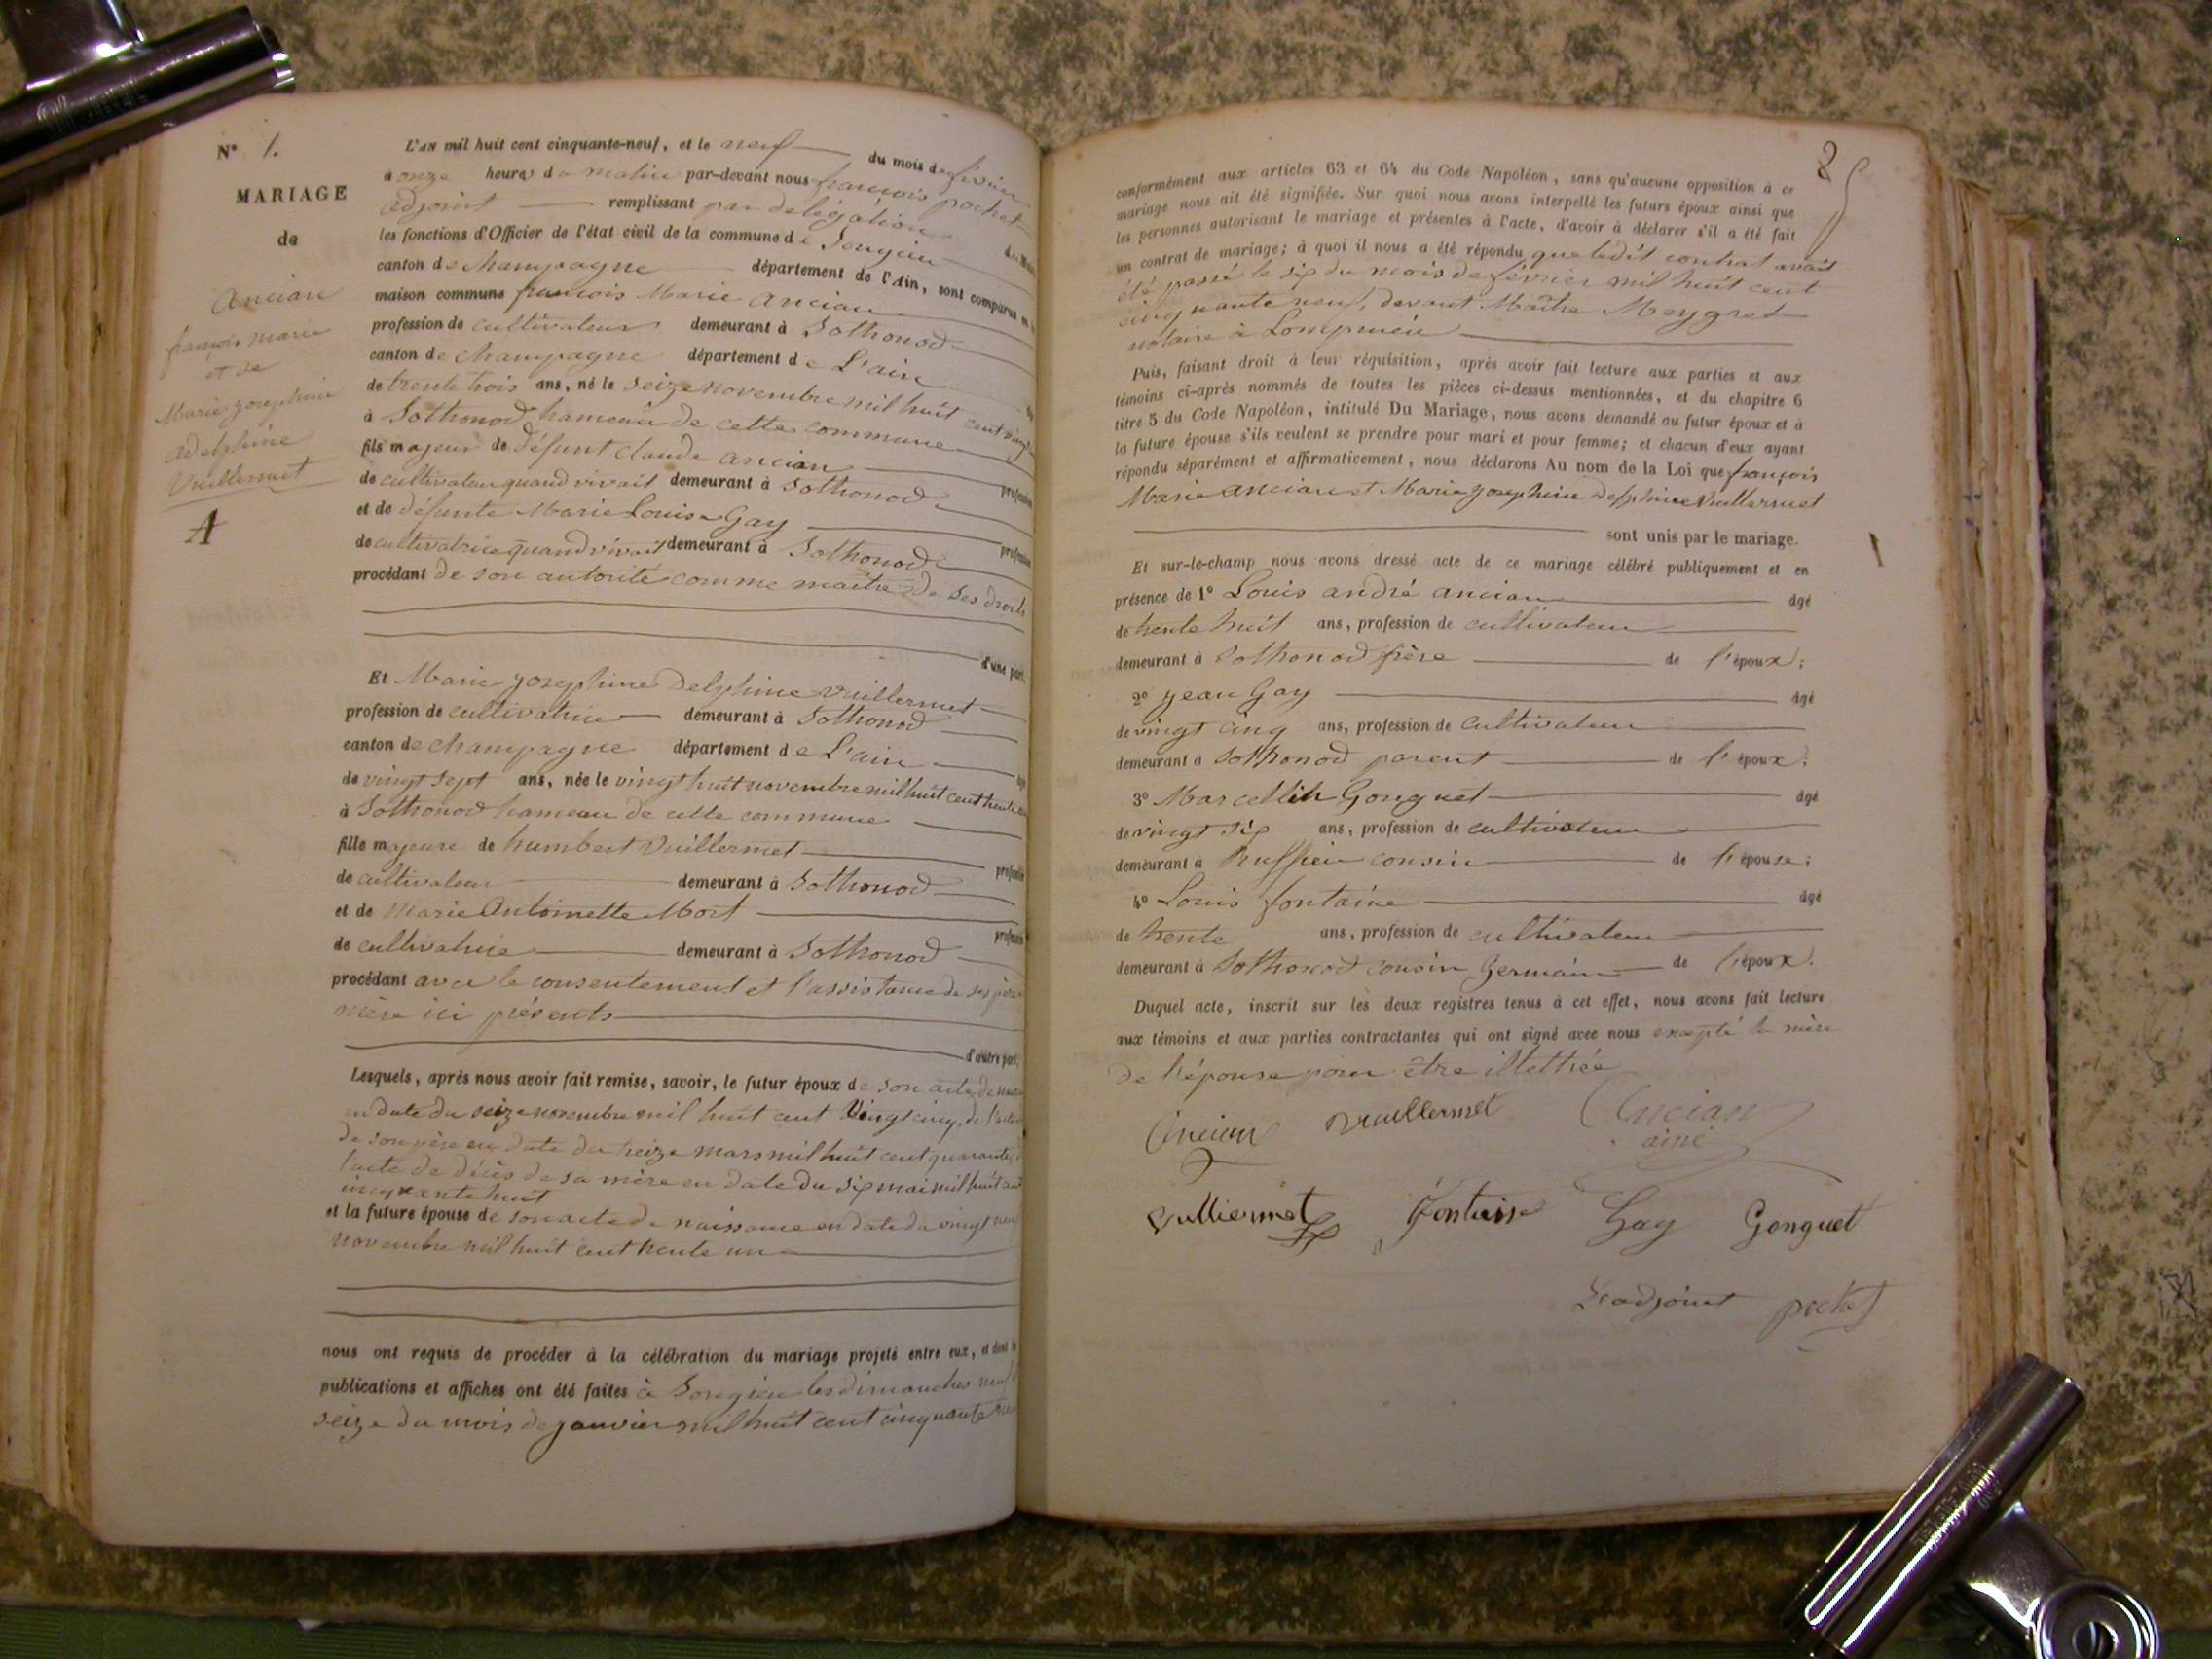 N° 1.
MARIAGE
de
Ancian
françois marie
et de
Marie josephine
adelphine
Vuillermet
A
L'AN mil huit cent cinquante-neuf, et le neuf du mois de février
à onze heures du matin par-devant nous françois pochet
adjoint remplissant par délégation
les fonctions d'Officier de l'état civil de la commune de Songieu
canton de champagne département de l'Ain, sont comparus en la
maison commune françois Marie ancian
profession de cultivateur demeurant à Sothonod
canton de champagne département de L'ain
de trente trois ans, né le seize novembre mil huit cent vingt
à Sothonod hameau de cette commune
fils majeur de défunt claude ancian profession
de cultivateur quand vivait demeurant à Sothonod
et de défunte Marie Louise Gay profession
de cultivatrice quand vivait demeurant à Sothonod
procédant de son autorité comme maître de ses droits
d'une part,
Et Marie josephine Delphine vuillermet
profession de cultivatrice demeurant à Sothonod
canton de champagne département de L'ain
de vingt sept ans, née le vingt huit novembre mil huit cent trente
à Sothonod hameau de cette commune
fille majeure de humbert Vuillermet profession
de cultivateur demeurant à Sothonod
et de Marie Antoinette Mort profession
de cultivatrice demeurant à Sothonod
procédant avec le consentement et l'assistance de ses père
mère ici présents
d'autre part,
Lesquels, après nous avoir fait remise, savoir, le futur époux de son acte de
en date du seize novembre mil huit cent vingt cinq, de l'acte
de son père en date du treize mars mil huit cent quarante
l'acte de décès de sa mère en date du six mai mil huit cent
cinquante huit
et la future épouse de son acte de naissance en date du vingt neuf
novembre mil huit cent trente un
nous ont requis de procéder à la célébration du mariage projeté entre eux, et dont les
publications et affiches ont été faites à Songieu les dimanches neuf
seize du mois de janvier mil huit cent cinquante neuf
2
conformément aux articles 63 et 64 du Code Napoléon, sans qu'aucune opposition à ce
mariage nous ait été signifiée. Sur quoi nous avons interpellé les futurs époux ainsi que
les personnes autorisant le mariage et présentes à l'acte, d'avoir à déclarer s'il a été fait
un contrat de mariage; à quoi il nous a été répondu que ledit contrat avait
été passé le six du mois de février mil huit cent
cinquante neuf, devant Maître Meygret
notaire à Lompnieu
Puis, faisant droit à leur réquisition, après avoir fait lecture aux parties et aux
témoins ci-après nommés de toutes les pièces ci-dessus mentionnées, et du chapitre 6
titre 5 du Code Napoléon, intitulé Du Mariage, nous avons demandé au futur époux et à
la future épouse s'ils veulent se prendre pour mari et pour femme; et chacun d'eux ayant
répondu séparément et affirmativement, nous déclarons Au nom de la Loi que françois
Marie ancian et Marie josephine Delphine Vuillermet
sont unis par le mariage.
Et sur-le-champ nous avons dressé acte de ce mariage célébré publiquement et en
présence de 1° Louis andré ancian âgé
de trente huit ans, profession de cultivateur
demeurant à Sothonod frère de l'époux;
2° jean Gay âgé
de vingt cinq ans, profession de cultivateur
demeurant à Sothonod parent de l'époux;
3° Marcellin Gonguet âgé
de vingt six ans, profession de cultivateur
demeurant à Ruffieu cousin de l'épouse;
4° Louis fontaine âgé
de trente ans, profession de cultivateur
demeurant à Sothonod cousin Germain de l'époux.
Duquel acte, inscrit sur les deux registres tenus à cet effet, nous avons fait lecture
aux témoins et aux parties contractantes qui ont signé avec nous excepté la mère
de l'épouse pour être illettrée
Ancian vuillermet Ancian
ainé
vulliermet fontaine Gay Gonguet
L'adjoint pochet